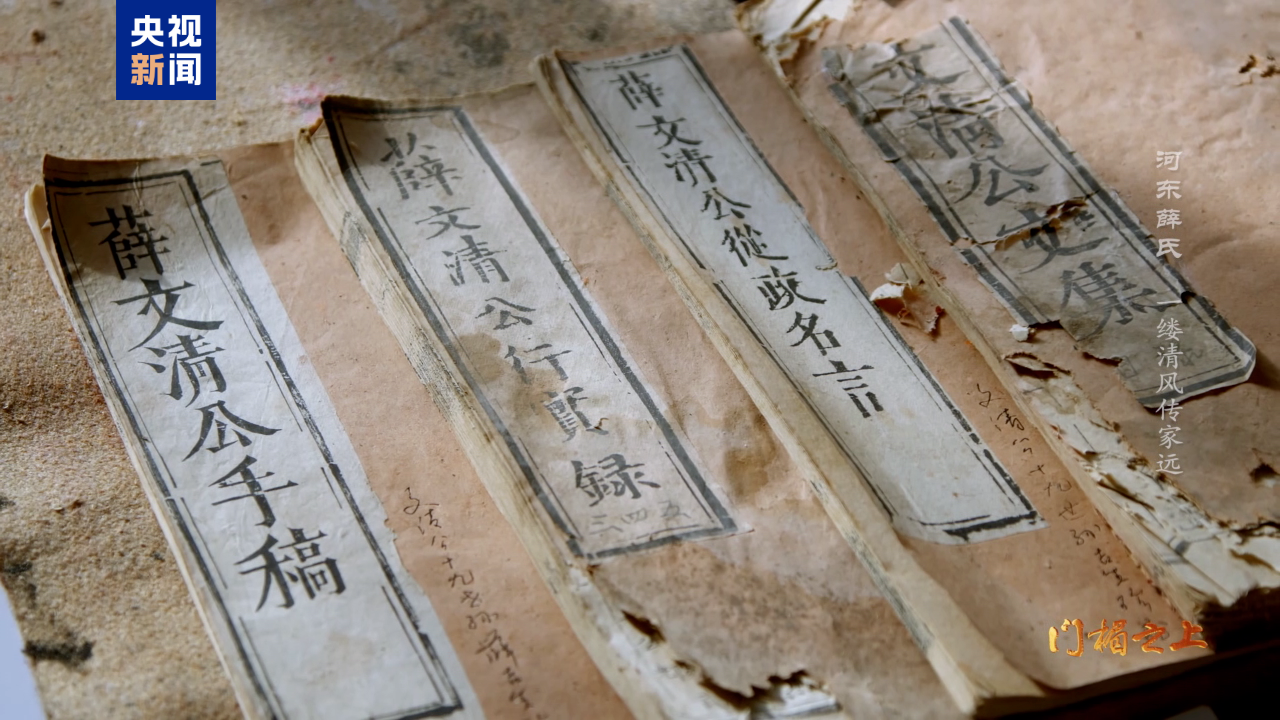 央视
新闻
薛文清公手稿
薛文清公行實録
三四五
薛文清公從政名言
文清公文集
文清公十九世孙薛
文清公十九世孙
河东薛氏 一缕清风传家远
门楣之上